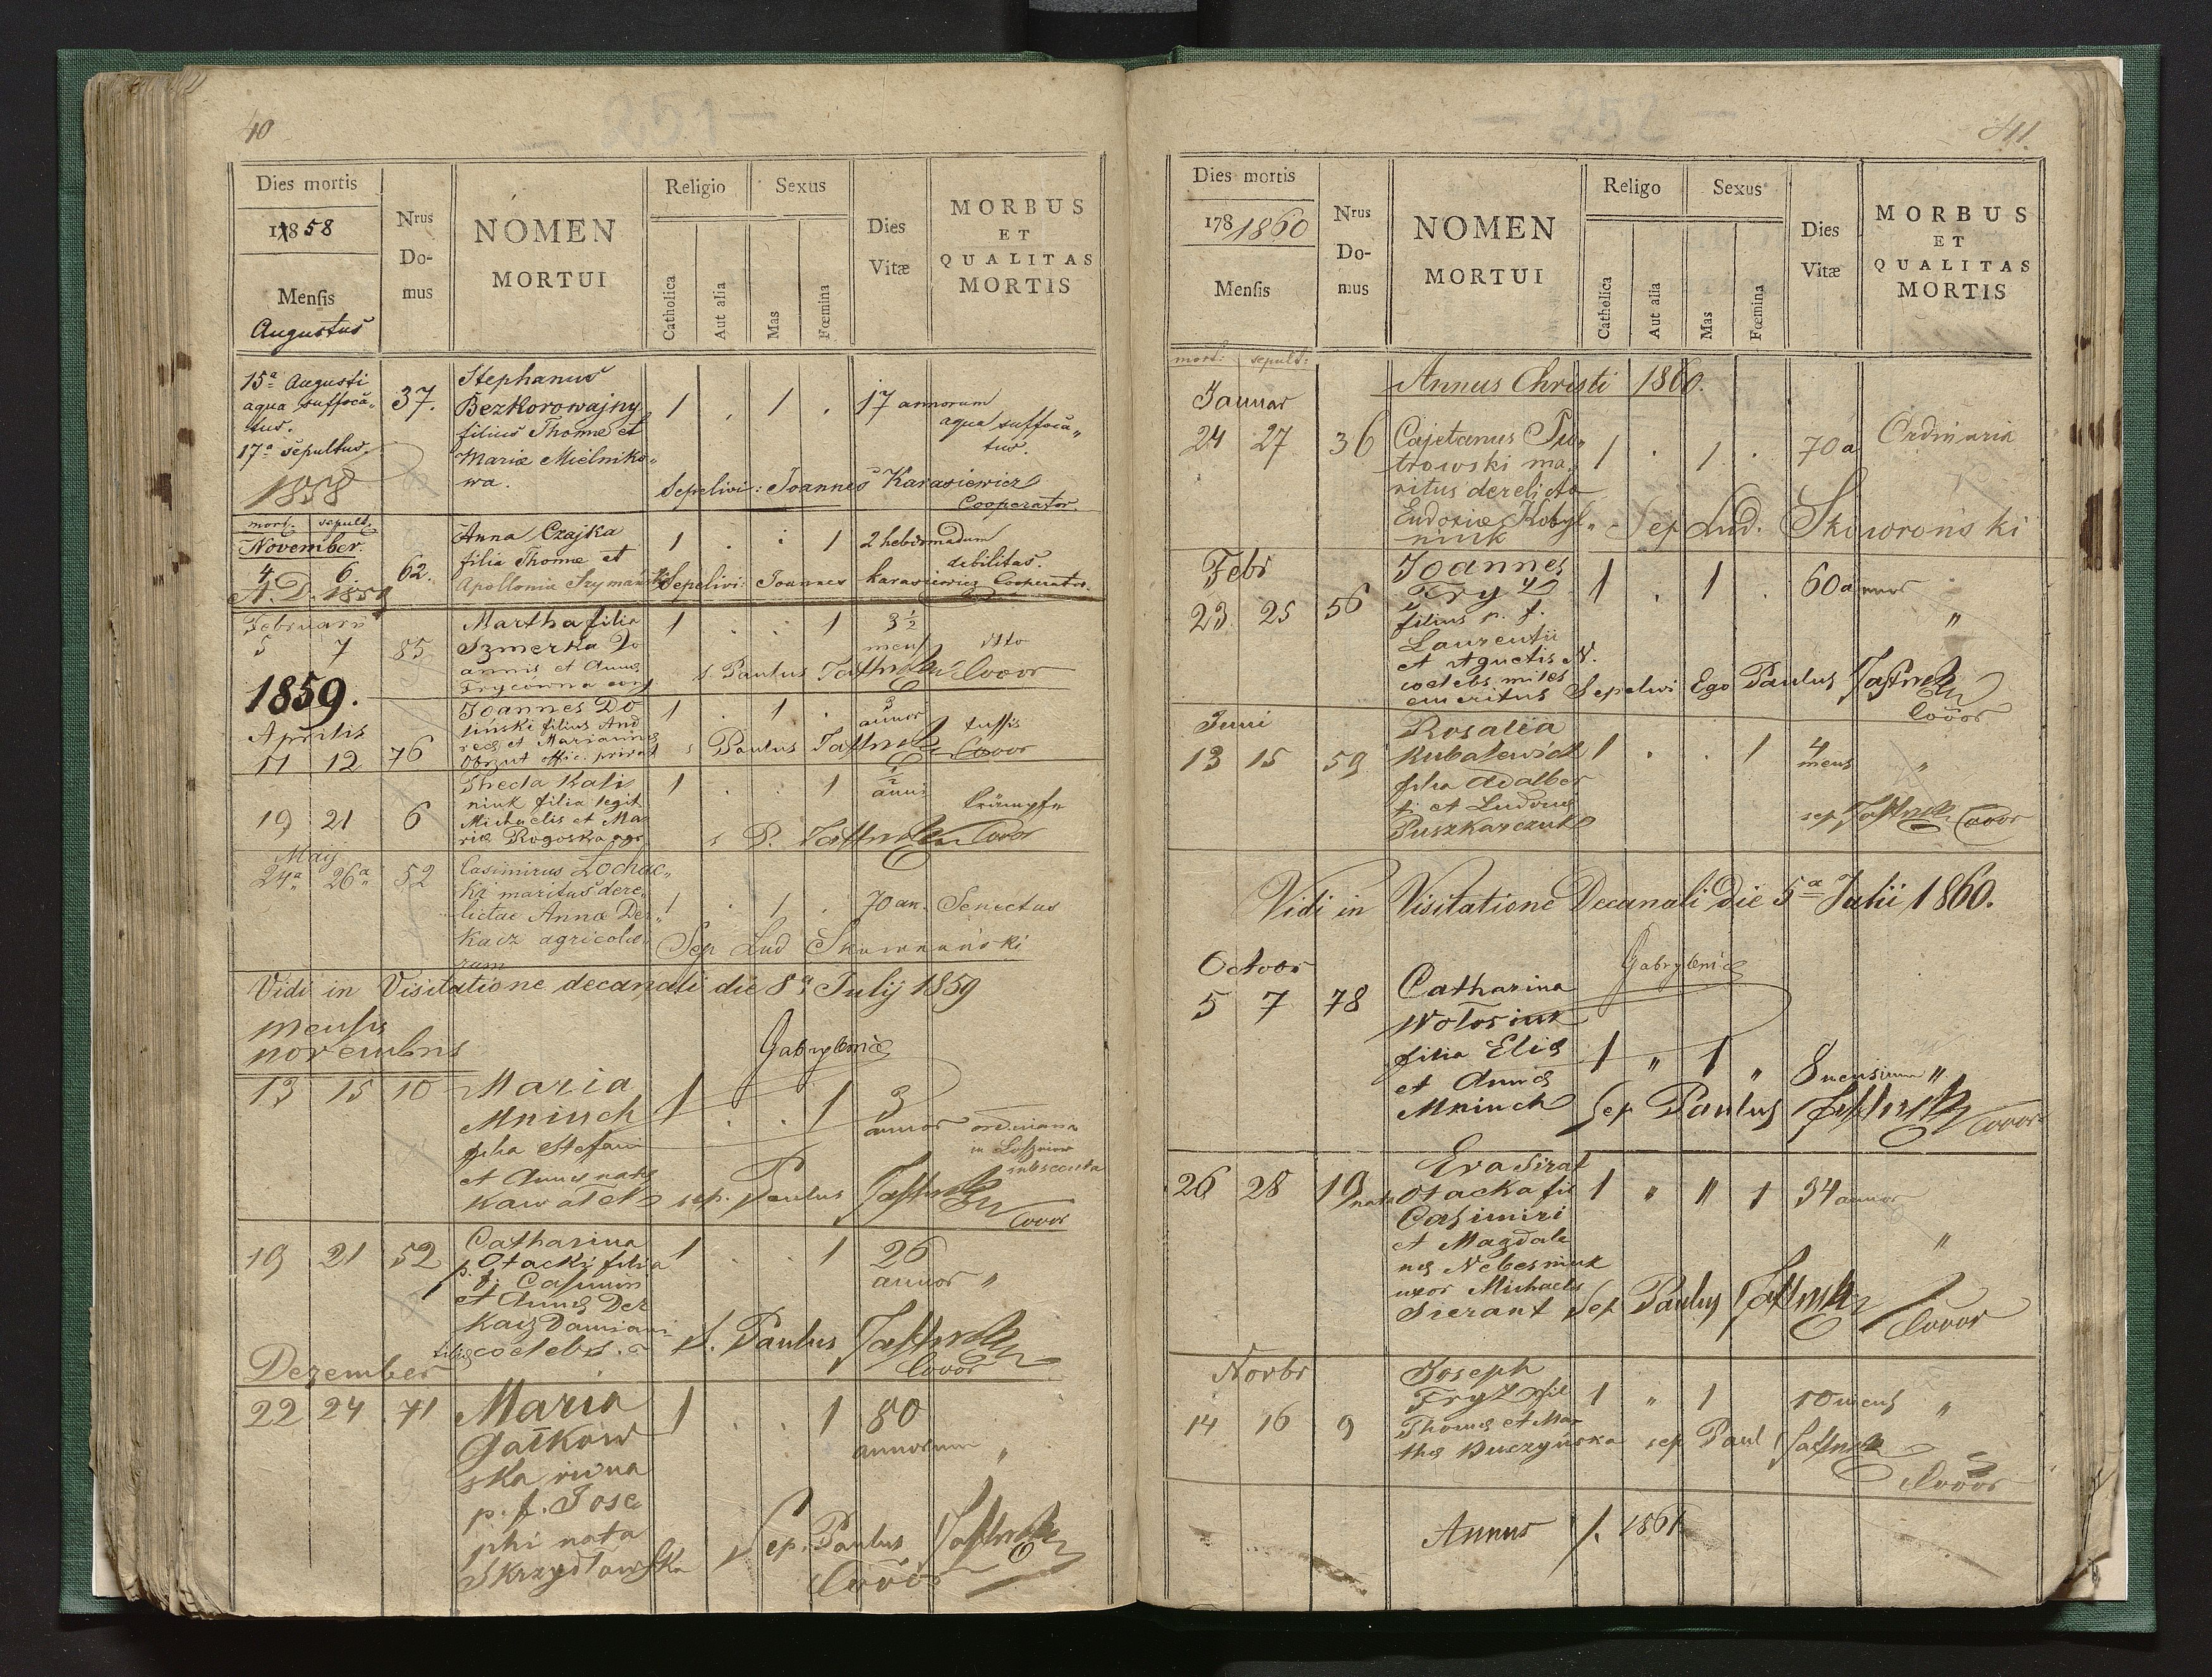 40
251
Dies mortis
1858
Mensis
Augustus
Nrus
Do-
mus
NOMEN
MORTUI
Religio
Sexus
Catholica
Aut alia
Mas
Fœmina
Dies
Vitæ
MORBUS
ET
QUALITAS
MORTIS
15a Augusti
aqua suffoca„
tus.
17a sepultus.
1858
37.
Stephanus
Bezkorowajny
filius Thomæ et
Mariæ Mielniko„
wa.
1 . 1 .
17 annorum
aqua suffoca„
tus.
Sepelivi: Joannes Karasiewicz
Cooperator
mort. sepult.
November.
4 6
A. D. 1859
62.
Anna Czajka
filia Thomæ et
Apollonia
1 . . 1
2 hebdomadum
debilitas.
Sepelivi: Joannes Karasiewicz Cooperator.
Februarii
5 7
85
Martha filia
Szmerka Jo
annis et Annæ
Frycówna
1 . . 1
3½
mens
dtto
s. Paulus
Coöor
1859.
Aprilis
11 12
76
Joannes Do
liński filius And
reæ et Mariannæ
Obrzut offic. privat
1 . 1 .
3
annor
tussis
s Paulus
Coöor
19 21
6
Thecla Kali
niuk filia legit
Michaelis et Ma
riæ Rogoska agr
1 . . 1
½
anni
Krämpfe
s P.
Coöor
Maij
24a 26a
52
Casimirus Lochac„
ki maritus dere„
lictae Annæ Der„
kacz agricola„
rum
1 . 1 .
70 an. Senectus
Sep Lud Skowroński
Vidi in Visitatione decanali die 8a Julij 1859
mensis
novembris
13 15 10
Maria
Mniuch
filia Stefani
et Annæ nata
Kawałek
1 . . 1
3
annor
ordinaria
in
subsecuta
sep. Paulus
Coöor
19 21 52
Catharina
p. Otacki filia
f. Casimiri
et Annæ Der
kacz Damiani
coelebs.
1 . . 1
26
annor „
S. Paulus
Coöor
Dezember
22 24 71
Maria
Gałkow
ska vidua
p. f. Jose
phi nata
Skrzydłowska
1 . . 1
80
annorum „
Sep. Paulus
Coöor
41.
252
Dies mortis
178 1860
Mensis
Nrus
Do-
mus
NOMEN
MORTUI
Religo
Sexus
Catholica
Aut alia
Mas
Fœmina
Dies
Vitæ
MORBUS
ET
QUALITAS
MORTIS
mort: sepult:
Annus Christi 1860.
Januar
24 27 36
Cajetanus Pio„
trowski ma„
ritus derelicta
Eudoxiæ Kobyl„
niuk
1 . 1 .
70 a
Ordinaria
Sep Lud. Skowroński
Febr
23 25 56
Joannes
Fryz
filius p. f.
Laurentii
et Agnetis N.
coelebs miles
emeritus
1 . 1 .
60 annor
„
Sepelivi Ego Paulus
Coöor
Juni
13 15 59
Rosalia
Kubalewicz
filia Adalber
ti et Ludovicæ
Puszkarczuk
1 . . 1
4
mens „
sep
Coöor
Vidi in Visitatione Decanali die 5a Julii 1860.
Octobr
5 7 78
Catharina
Wołosiuk
filia Eliæ
et Annæ
Mniuch
1 „ 1 „
8 mensium „
Sep Paulus
Coöor
26 28 19
Eva Sirat
nata Otacka fil
Casimiri
et Magdale
næ Nebesniuk
uxor Michaelis
Sierant
1 „ „ 1
34 annor
„
Sep Paulus
Coöor
Novbr
14 16 9
Joseph
Fryz fil
Thomæ et Mar
thæ Buczyńska
1 „ 1
10 mens „
sep Paul
Coöor
Annus 1861